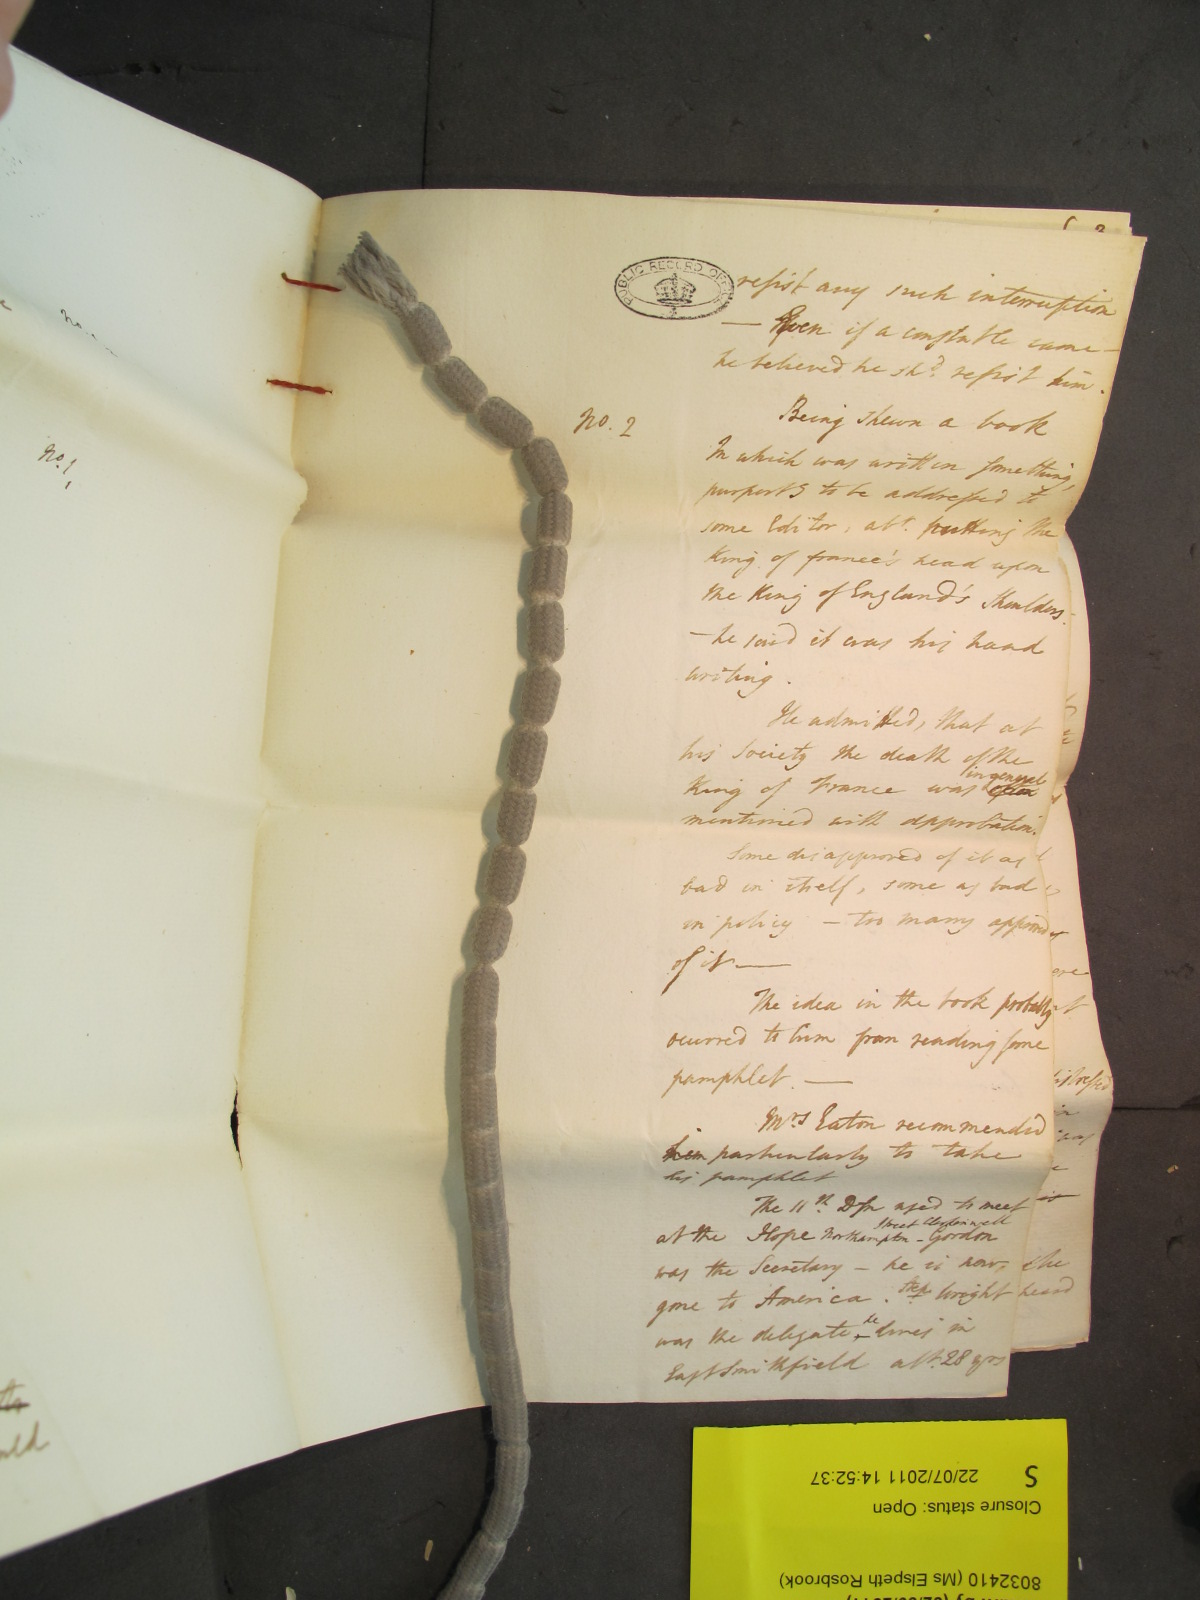 PUBLIC RECORD OFFICE
resist any such interruption
— Even if a constable came —
he believed he shd. resist him.
No. 2
No. 1
Being shewn a book
In which was written something,
purports to be addressed to
some Editor, abt. putting the
King of france's head upon
the King of England's Shoulders.
— he said it was his hand
writing.
He admitted, that at
his Society the death of the
in general
King of France was often
mentioned with approbation.
Some disapproved of it as
bad in itself, some as bad
in policy — too many approved
of it —
The idea in the book probably
ocurred to him from reading some
pamphlet. —
Mrs Eaton recommended
him particularly to take
his pamphlet
The 11th. Dn used to meet
Street Clerkenwell
at the Hope Northampton - Gordon
was the Secretary — he is now
gone to America. Wright
he
was the delegate, lives in
East Smithfield abt. 28 yrs
heard
the
uld
S
22/07/2011 14:52:37
Closure status: Open
8032410 (Ms Elspeth Rosbrook)